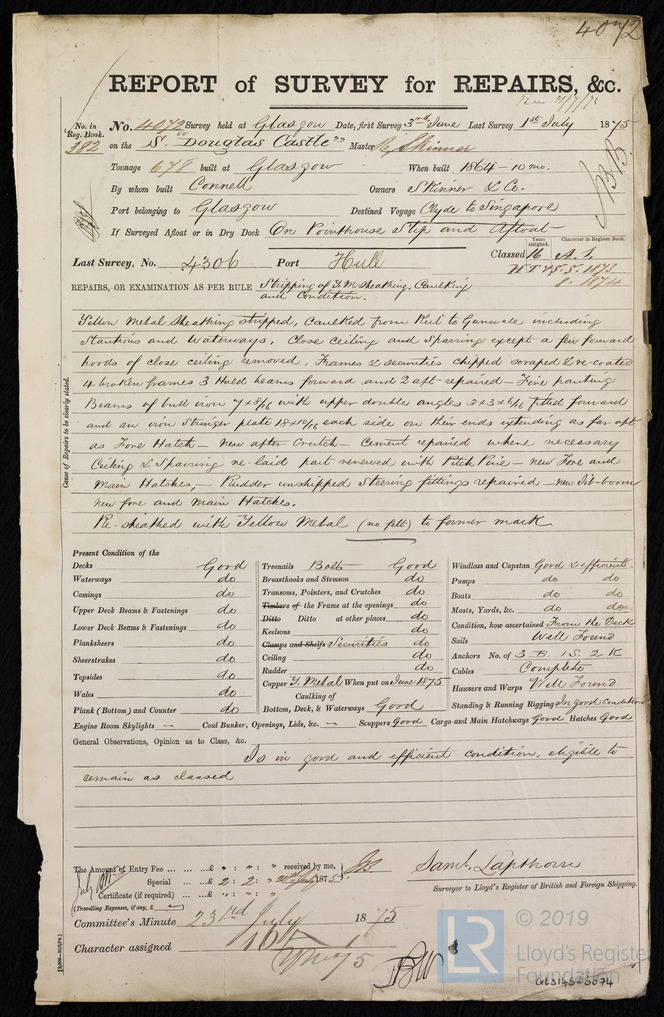 4072
REPORT of SURVEY for REPAIRS, &c.
No. in Reg. Book.
382
No. 4072 Survey held at Glasgow Date, first Survey 3rd June Last Survey 1st July 1875
on the "Douglas Castle" Master Skinner
Tonnage 678 built at Glasgow When built 1864-10 mo.
By whom built Connell Owners Skinner & Co.
Port belonging to Glasgow Destined Voyage Clyde to Singapore
If Surveyed Afloat or in Dry Dock On Pointhouse Slip and Afloat
Years assigned. Character in Register Book.
Last Survey, No. 4306 Port Hull Classed 16 A.1.
S.S. 1873
8. 1874
REPAIRS, OR EXAMINATION AS PER RULE Stripping of Y.M sheathing, Caulking
and Condition.
Cause of Repairs to be clearly stated.
Yellow Metal Sheathing stripped, Caulked from Keel to Gunwale including
Stantions and Waterways. Close Ceiling and Sparring except a few forward
hoods of close ceiling removed. Frames & securities chipped scraped & re-coated
4 broken frames 3 Hold beams forward and 2 aft repaired — Five panting
Beams of bulb iron 7 x 8/16 with upper double angles 3 x 3 x 6/16 fitted forward
and an iron stringer plate 18 x 10/16 each side on their ends extending as far aft
as Fore Hatch — New after Crutch — Cement repaired where necessary
Ceiling & Sparring re-laid part renewed with Pitch Pine — new Fore and
Main Hatches, — Rudder unshipped Steering fittings repaired — new Jib-boom
new fore and Main Hatches.
Re-sheathed with Yellow Metal (no felt) to former mark
Present Condition of the
Decks Good
Waterways do
Comings do
Upper Deck Beams & Fastenings do
Lower Deck Beams & Fastenings do
Planksheers do
Sheerstrakes do
Topsides do
Wales do
Plank (Bottom) and Counter do
Treenails Bolts Good
Breasthooks and Stemson do
Transoms, Pointers, and Crutches do
Timbers of the Frame at the openings do
Ditto Ditto at other places do
Keelsons do
Clamps and Shelfs Securities do
Ceiling do
Rudder do
Copper Y. Metal When put on June 1875
Caulking of
Bottom, Deck, & Waterways Good
Windlass and Capstan Good & efficient
Pumps do do
Boats do do
Masts, Yards, &c. do do
Condition, how ascertained From the Deck
Sails Well Found
Anchors No. of 3 B. 1 S. 2 K
Cables Complete
Hausers and Warps Well Found
Standing & Running Rigging In good condition
Engine Room Skylights — Coal Bunker, Openings, Lids, &c. — Scuppers Good Cargo and Main Hatchways Good Hatches Good
General Observations, Opinion as to Class, &c.
Is in good and efficient condition, eligible to
remain as classed
The Amount of Entry Fee ... ... ...£ " : " : " received by me,
Special ... ...£ 2 : 2 : " 1875
Certificate (if required) ... ...£ " : " : "
(Travelling Expenses, if any, £ )
Saml. Lapthorn
Surveyor to Lloyd's Register of British and Foreign Shipping.
Committee's Minute 23rd July 1875
Character assigned
BW
© 2019
LR
Lloyd's Register
Foundation